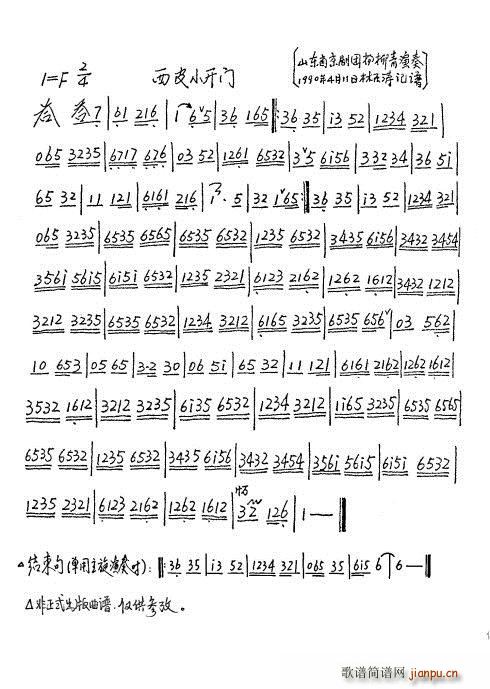 1=F 2/4 西皮小开门 山东省京剧团 柳青演奏
1990年4月11日 记谱
7|61 216|1 6ˇ5|36 165‖:36 35|i3 52|1234 321|
065 3235|6717 676|03 52|1261 6532|3ˇ5 6i56|332 34|36 5i|
65 32|11 121|6161 216|1·5|32 1ˇ65:‖36 35|i3 52|1234 321|
065 3235|6535 6565|6535 6532|1235 6532|3435 6i56|3432 3454|
356i 56i5|6i5i 6532|1235 2321|6123 2162|1262 1612|3432 1212|
3212 3235|6535 6532|1234 3212|6165 3235|6535 656ˇ|03 562|
10 653|05 65|3·2 30|06 5i|65 32|11 121|6161 2162|1262 1612|
3532 1612|3212 3235|6i35 6532|1234 3212|1i65 3235|6535 6565|
6535 6532|1235 6532|3435 6i56|3432 3454|356i 56i5|6i5i 6532|
1235 2321|6123 2162|1262 1612|32 126|1—‖
△结束句(单用主旋演奏时):‖:36 35|i3 52|1234 321|065 35|6i5 6|6—‖
△非正式出版曲谱.仅供参改。
歌谱简谱网
jianpu.cn